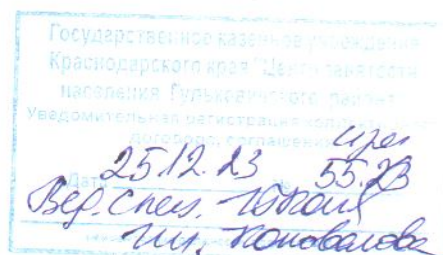 Государственное казенное учреждение
Краснодарского края "Центр занятости
населения Гулькевичского района"
Уведомительная регистрация
договора, соглашения
Дата 25.12.23 № 55.23
Вед. спец.
Коновалова